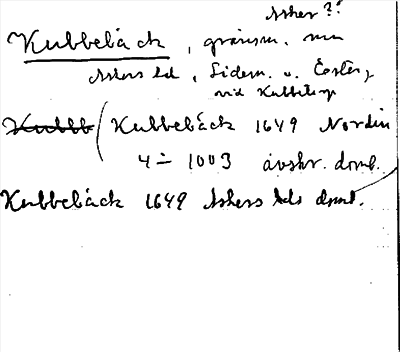 Askers ??
Kubbebäck, gränsm. m
Askers sd, Lidem. u. Öster,
vid Kubbetorp
Kubbebäck 1649 Nordin
4:o 1003 avskr. domb.
Kubbebäck 1649 Askers hds domb.